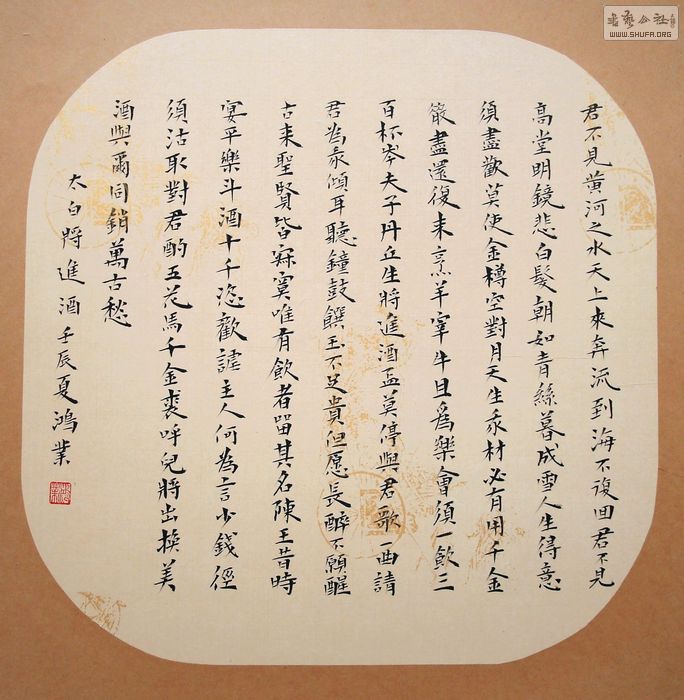 君不見黃河之水天上來奔流到海不復回君不見
高堂明鏡悲白髮朝如青絲暮成雪人生得意
須盡歡莫使金樽空對月天生我材必有用千金
散盡還復来烹羊宰牛且爲樂會須一飲三
百杯岑夫子丹丘生將進酒盃莫停與君歌一曲請
君為我傾耳聽鐘鼓饌玉不足貴但愿長醉不願醒
古来聖賢皆寂寞唯有飲者留其名陳王昔時
宴平樂斗酒十千恣歡謔主人何為言少錢徑
須沽取對君酌五花馬千金裘呼兒將出換美
酒與爾同銷萬古愁
太白將進酒壬辰夏鴻業
WWW.SHUFA.ORG